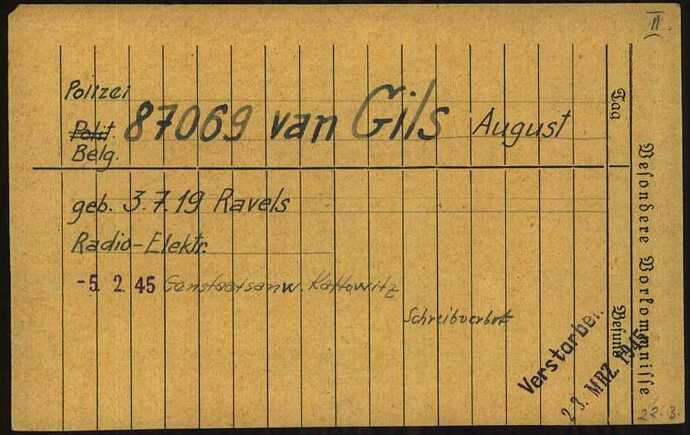 II
Polizei
Polit 87069 van Gils August
Belg.
geb. 3.7.19 Ravels
Radio-Elektr.
-5. 2. 45 Genstaatsanw. Kattowitz
Schreibverbot
Verstorben
23. MRZ. 1945
22.3.
Tag
Befund
Besondere Vorkommnisse